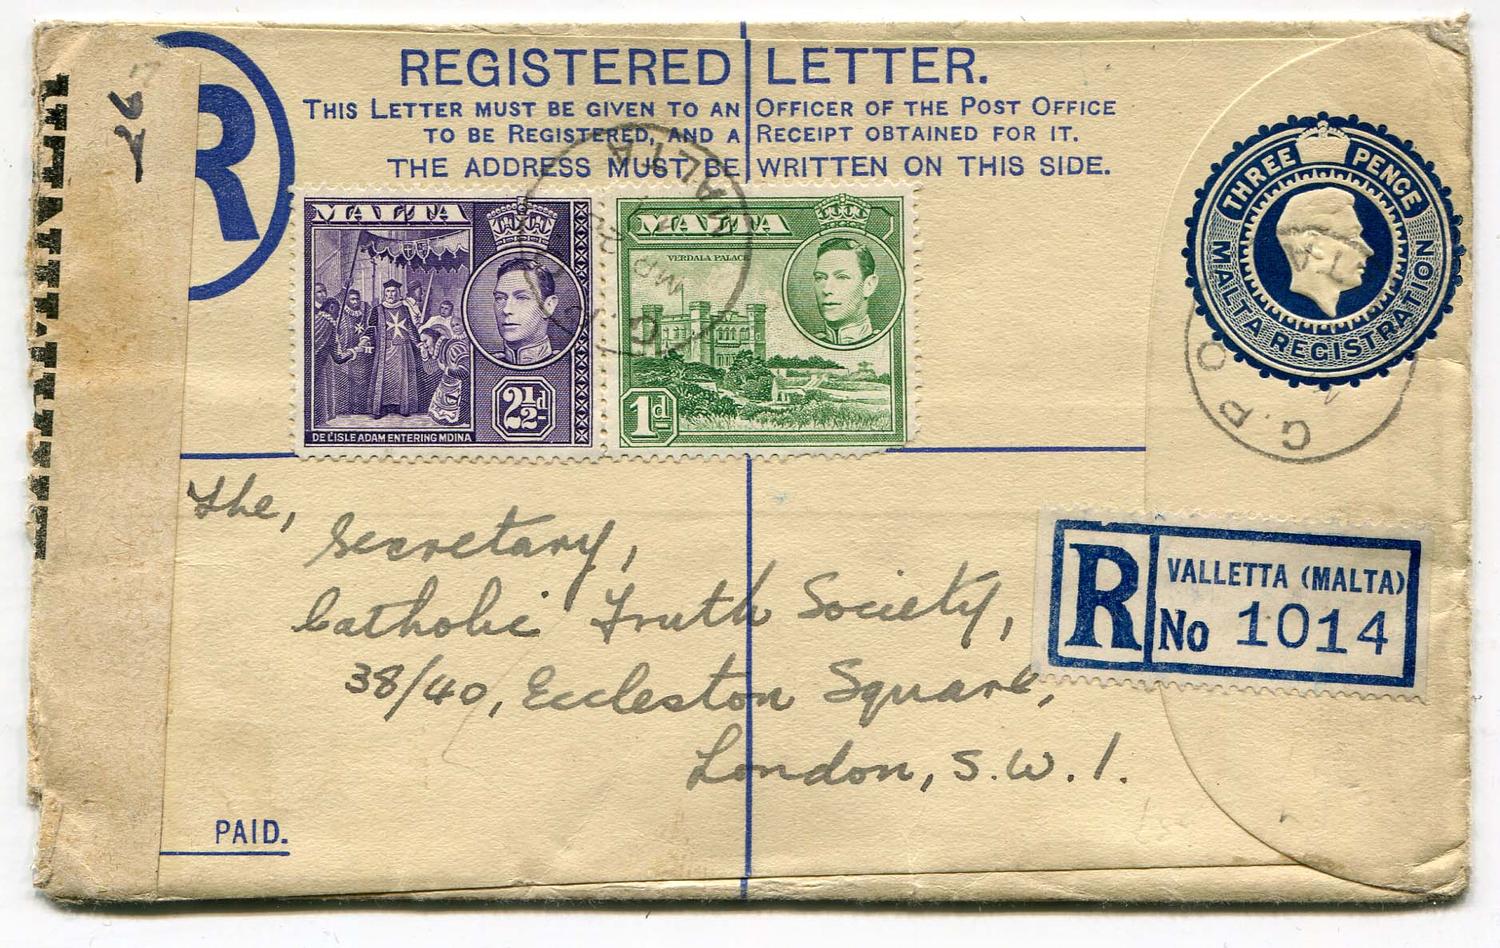 REGISTERED LETTER.
THIS LETTER MUST BE GIVEN TO AN OFFICER OF THE POST OFFICE
TO BE REGISTERED, AND A RECEIPT OBTAINED FOR IT.
THE ADDRESS MUST BE WRITTEN ON THIS SIDE.
R
THREE PENCE
MALTA REGISTRATION
MALTA
2½d
DE L'ISLE ADAM ENTERING MDINA
MALTA
VERDALA PALACE
1d
G.P.O.
The,
Secretary,
Catholic Truth Society,
38/40, Eccleston Square,
London, S.W.1.
R
VALLETTA (MALTA)
No 1014
PAID.